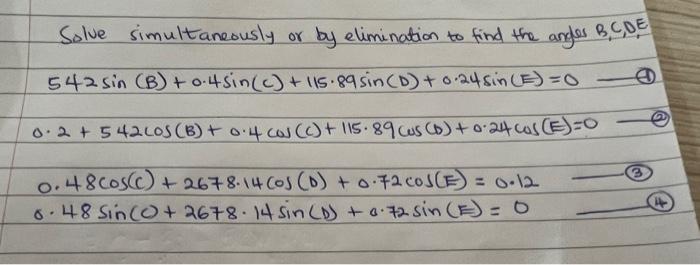 Solve simultaneously or by elimination to find the angles B,C,D,E
542 sin (B) + 0.4 sin(C) + 115.89 sin (D) + 0.24 sin (E) = 0 — ①
0.2 + 542 cos (B) + 0.4 cos (C) + 115.89 cos (D) + 0.24 cos (E) = 0 — ②
0.48 cos(C) + 2678.14 cos (D) + 0.72 cos(E) = 0.12 — ③
0.48 sin(C) + 2678.14 sin (D) + 0.72 sin (E) = 0 — ④